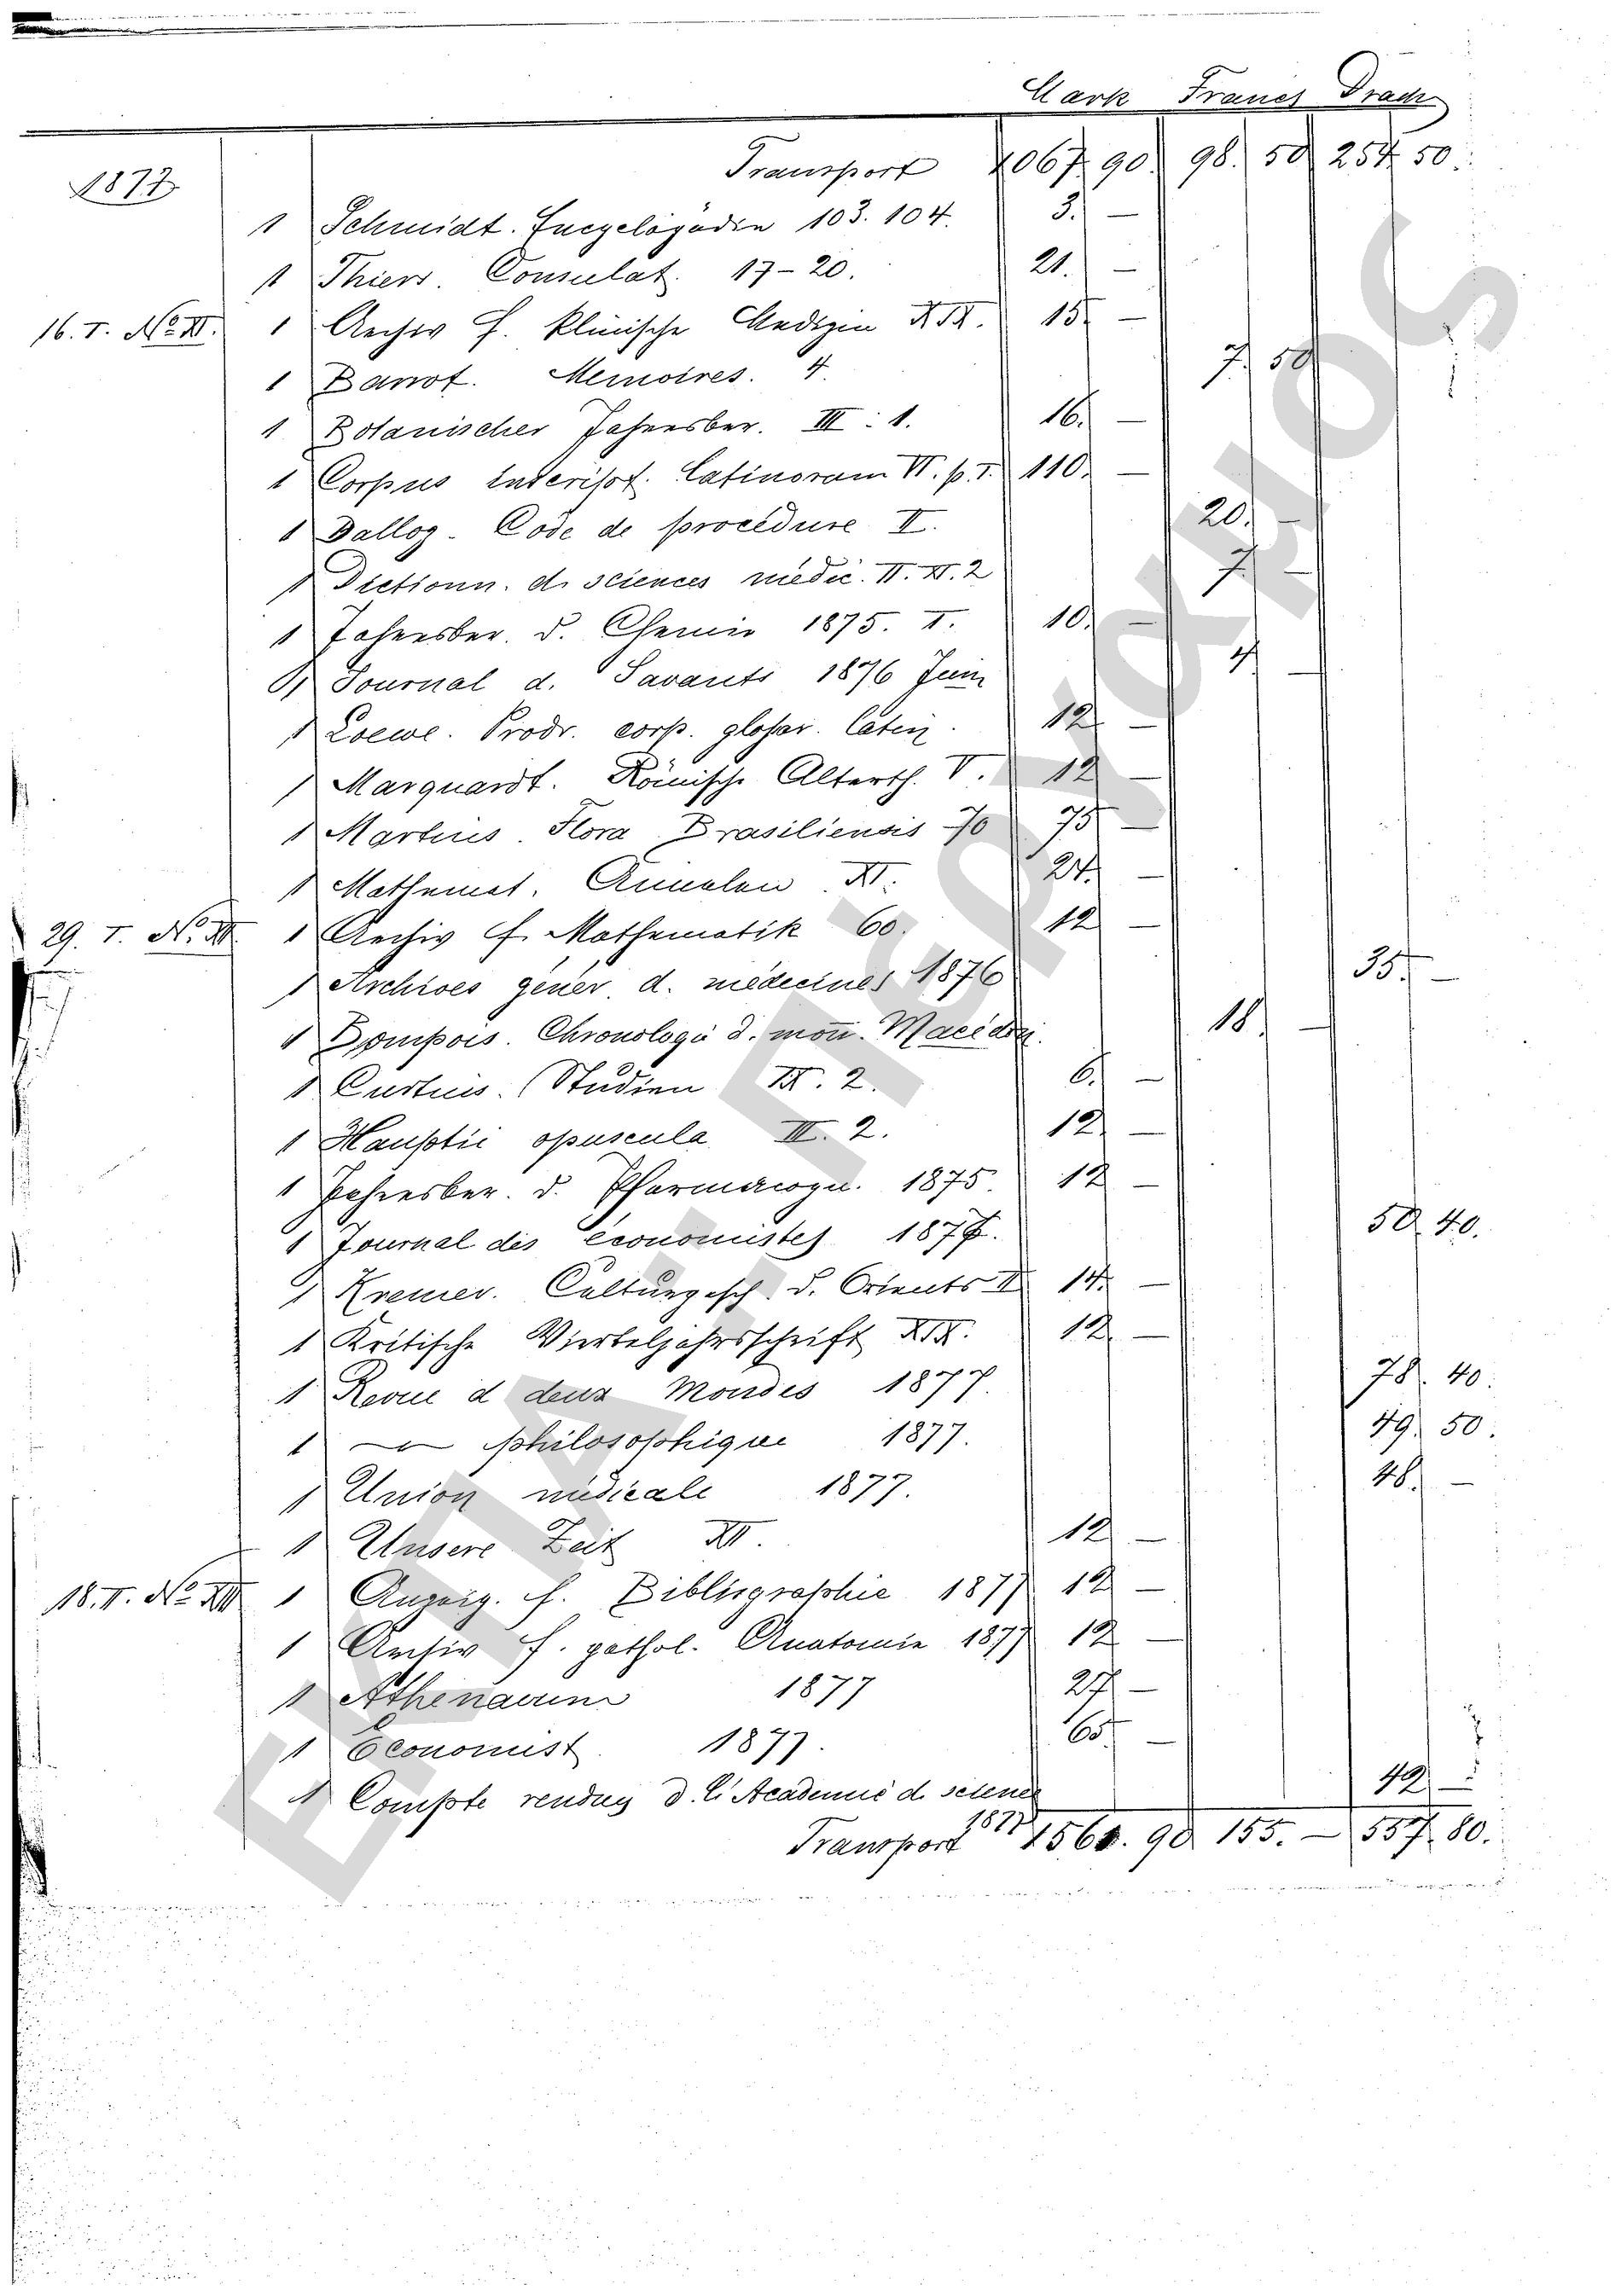 Mark Francs Drach
Transport 1067. 90. 98. 50 254. 50.
1877
1 Schmidt. Encyclopädie 103. 104. 3. —
1 Thiers. Consulat. 17-20. 21. —
16. I. No. XI. 1 Archiv f. klinische Medizin XIX. 15. —
1 Barrot. Memoires. 4. 7. 50
1 Botanischer Jahresber. III : 1. 16. —
1 Corpus Inscript. Latinorum VI. p. I. 110. —
1 Dalloz. Code de procédure II. 20. —
1 Dictionn. d. sciences médic. II. XI. 2 7. —
1 Jahresber. d. Chemie 1875. I. 10. —
1 Journal d. Savants 1876 Juin 4. —
1 Loewe. Prodr. corp. glossar. latin. 12. —
1 Marquardt. Römische Alterth. V. 12 —
1 Martius. Flora Brasiliensis 70 75 —
1 Mathemat. Annalen XI. 24. —
29. I. No. XII. 1 Archiv f. Mathematik 60. 12 —
1 Archives génér. d. médecines 1876 35. —
1 Bompois. Chronologie d. mon. Macédon. 18. —
1 Curtius. Studien IX. 2. 6. —
1 Hauptii opuscula III. 2. 12. —
1 Jahresber. d. Pharmacogn. 1875. 12 —
1 Journal des économistes 1877. 50. 40.
1 Kremer. Culturgesch. d. Orients II 14. —
1 Kritische Vierteljahrsschrift XIX. 12. —
1 Revue d deux Mondes 1877. 78. 40.
1 — philosophique 1877. 49. 50.
1 Union médicale 1877. 48. —
1 Unsere Zeit XII. 12. —
18. II. No. XIII 1 Anzeig. f. Bibliographie 1877 12 —
1 Archiv f. pathol. Anatomie 1877 12 —
1 Athenaeum 1877 27. —
1 Economist. 1877. 65. —
1 Compte rendus d. l'Academie d. science 1877 42. —
Transport 1568. 90 155. — 557. 80.